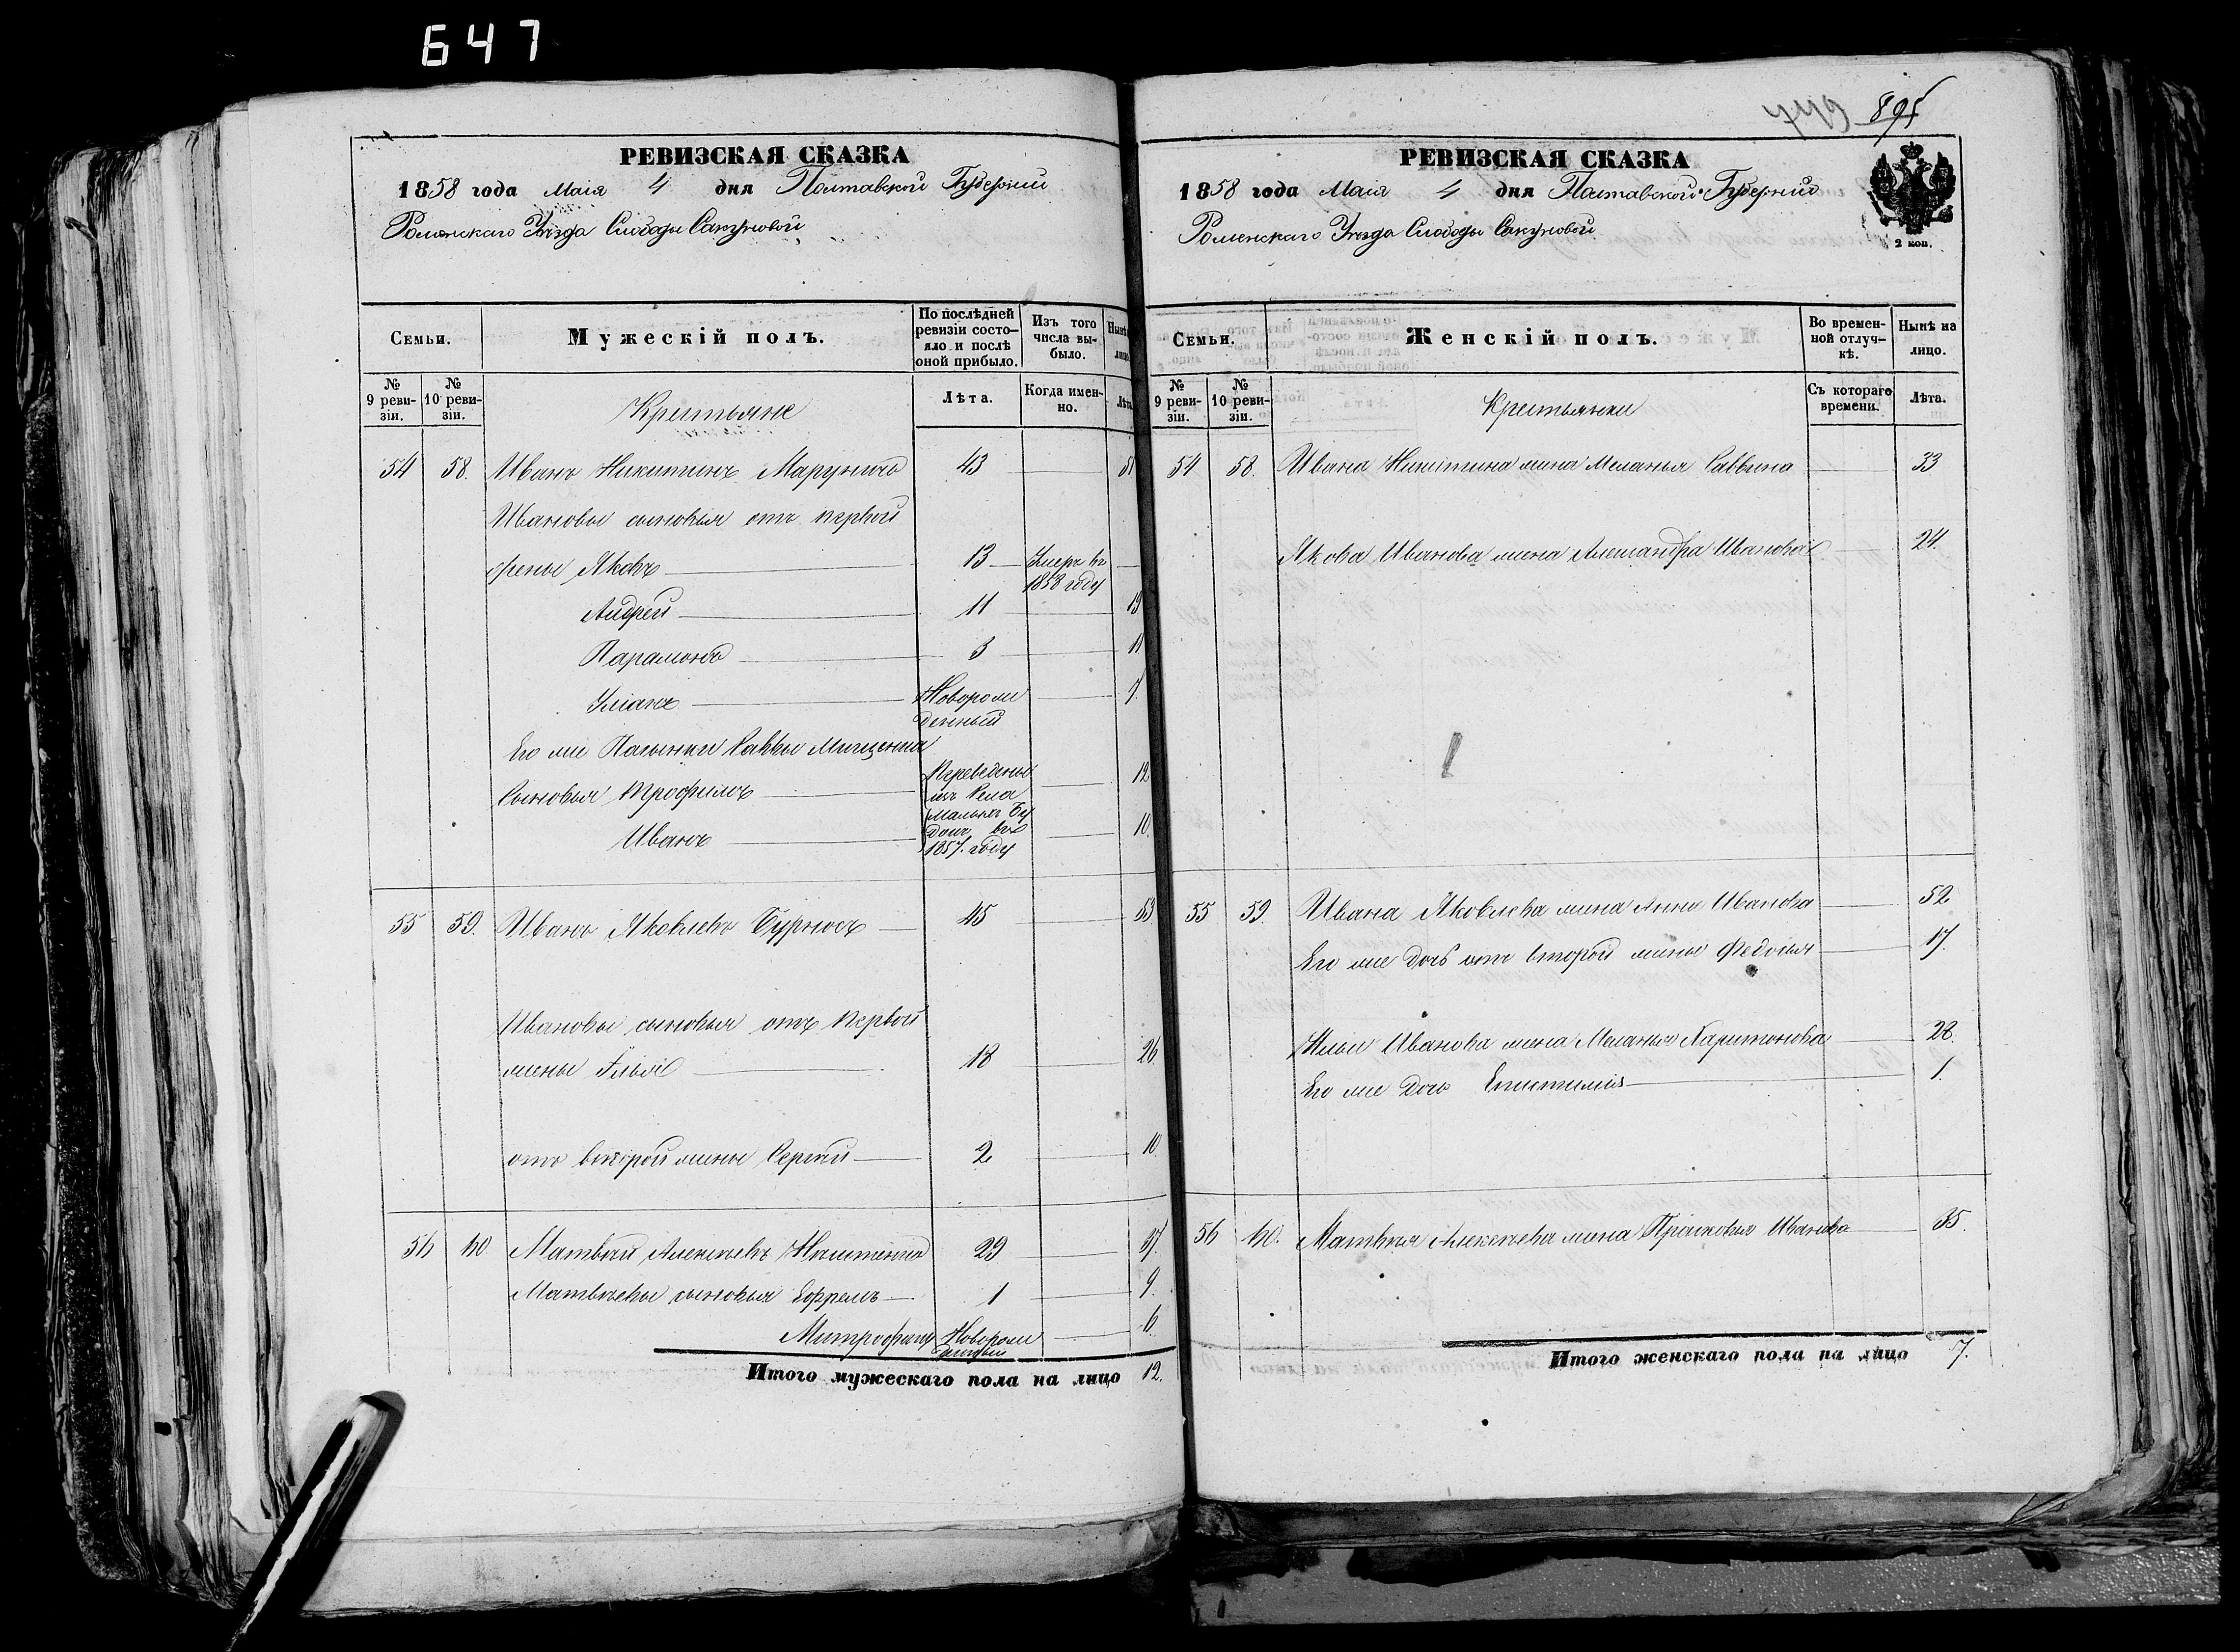 647
895
РЕВИЗСКАЯ СКАЗКА
1858 года Маія 4 дня Полтавской Губерніи
Роменскаго Уѣзда Слободы Сакуновой
Семьи.
Мужескій полъ.
По послѣдней ревизіи состо-
яло и послѣ
оной прибыло.
Изъ того
числа вы-
было.
Нынѣ
лицо
№
9 реви-
зіи.
№
10 реви-
зіи.
Крестьяне
Лѣта.
Когда имен-
но.
Лѣта
54 58. Иванъ Никитинъ 43 51
Ивановы сыновья отъ первой
жены Яковъ 13 Умеръ въ
1858 году
Андрей 11 19
Парамонъ 3 11
Уліанъ Новорож
денный 7.
Его же Пасынки Саввы Мищенка
Сыновья Трофимъ 12
Иванъ 10.
Переведены
изъ Села
Малыхъ Бу
докъ въ
1857. году
55 59. Иванъ Яковлевъ Бурносъ 45 53
Ивановы сыновья отъ первой
жены Илья 18 26
отъ второй жены Сергей 2 10
56 60 Матвѣй Алексѣевъ 29 37.
Матвѣевы сыновья Ефремъ 1 9.
Митрофанъ Новорож
денный 6
Итого мужескаго пола на лицо 12.
РЕВИЗСКАЯ СКАЗКА
1858 года Маія 4 дня Полтавской Губерніи
Роменскаго Уѣзда Слободы Сакуновой
2 коп.
Семьи.
Женскій полъ.
Во времен-
ной отлуч-
кѣ.
Нынѣ на
лицо.
№
9 реви-
зіи.
№
10 реви-
зіи.
Крестьянки
Съ котораго
времени.
Лѣта.
54 58. Ивана Никитина жена Меланья Саввина 33
Якова Иванова жена Александра Иванова 24.
55 59. Ивана Яковлева жена Анна Иванова 52
Его же дочь отъ второй жены Федосья 17.
Ильи Иванова жена Меланья Харитонова 28.
Его же дочь Епистимія 1.
56 60. Матвѣя Алексѣева жена Прасковья Иванова 35.
Итого женскаго пола на лицо 7.